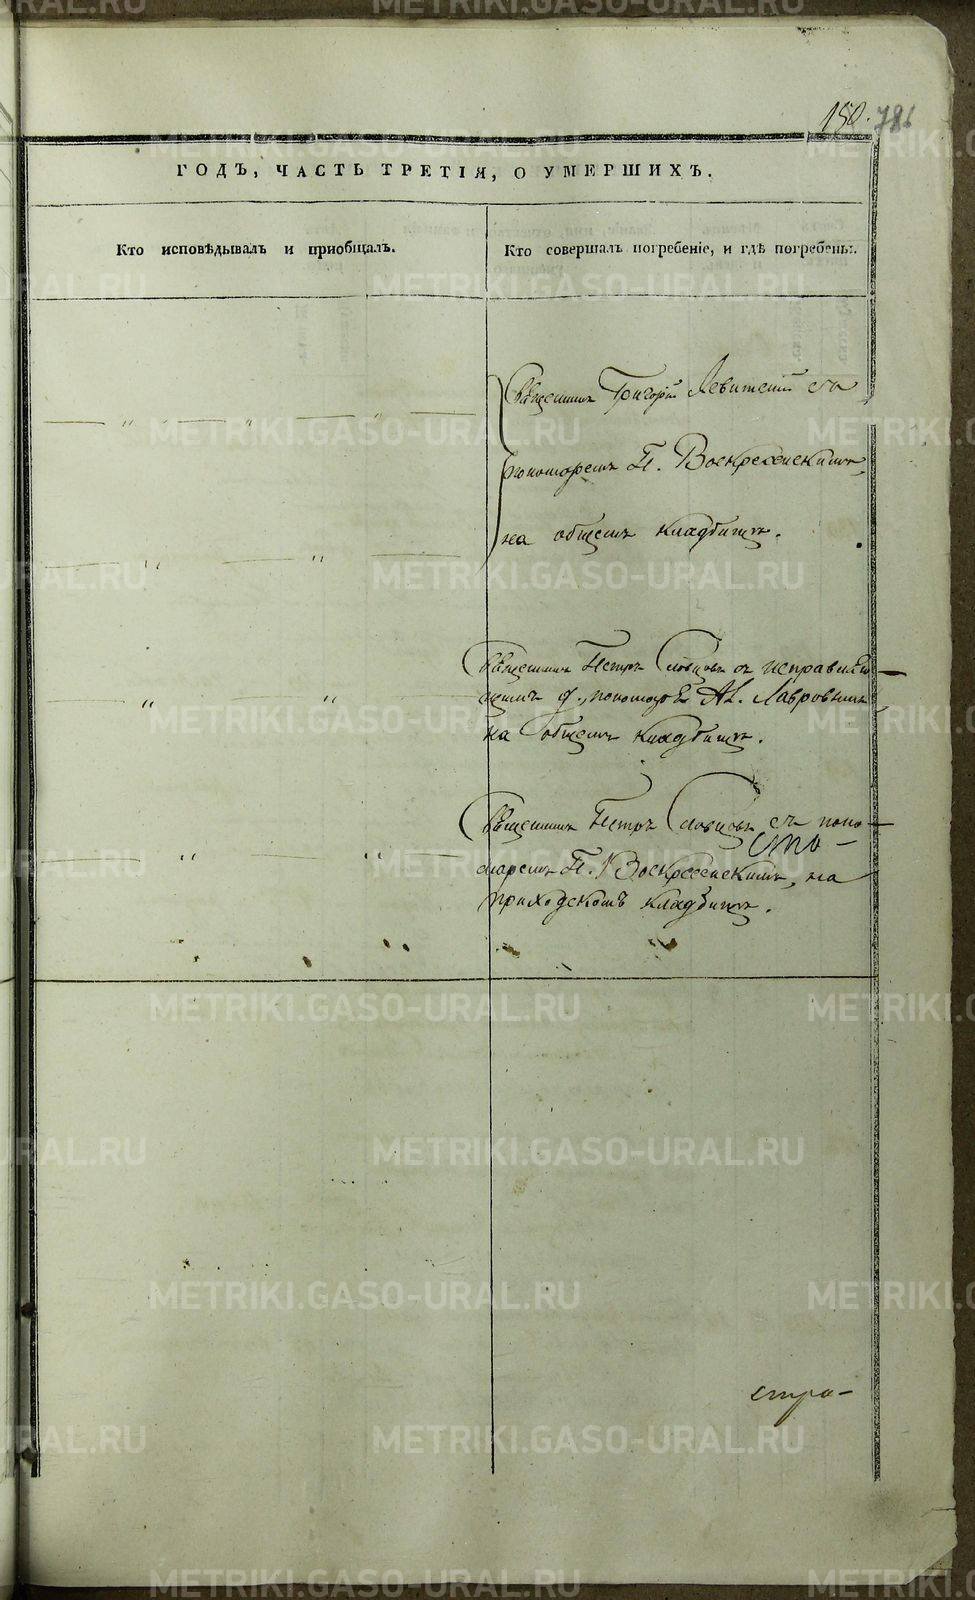 150. 786
ГОДЪ, ЧАСТЬ ТРЕТІЯ, О УМЕРШИХЪ.
Кто исповѣдывалъ и приобщалъ.
Кто совершалъ погребеніе, и гдѣ погребены.
Священникъ Григорій Левитскій съ
пономаремъ П. Воскресенскимъ,
на общемъ кладбищѣ.
Священникъ Петръ Словцовъ съ исправляю-
щимъ д. пономаря Ал. Лавровымъ
на общемъ кладбищѣ.
Священникъ Петръ Словцовъ съ поно-
маремъ П. Воскресенскимъ, на
приходскомъ кладбищѣ.
стра-
METRIKI.GASO-URAL.RU